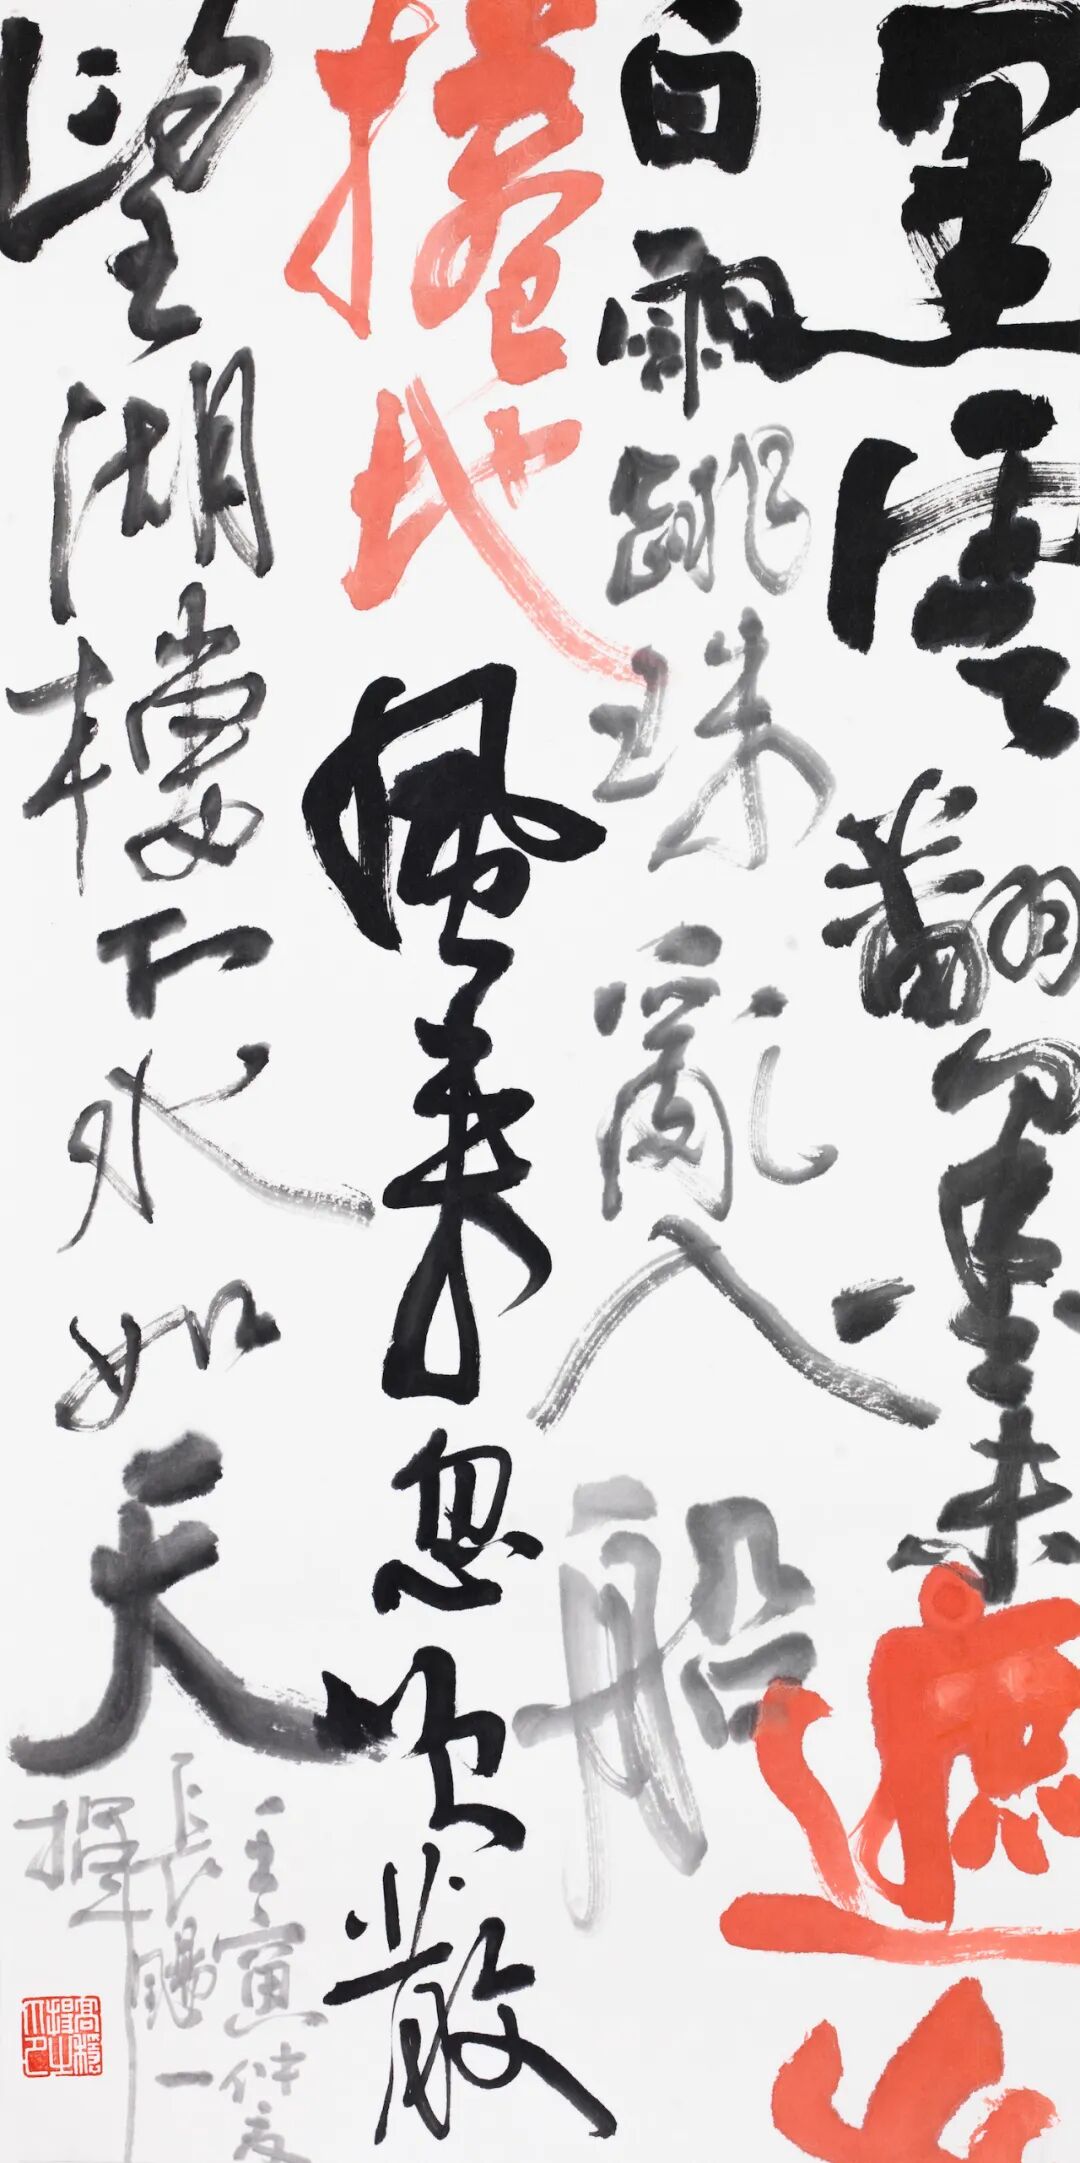 黑雲翻墨未遮山
白雨跳珠亂入船
捲地風来忽吹散
望湖樓下水如天
壬寅仲夏
長一
揮